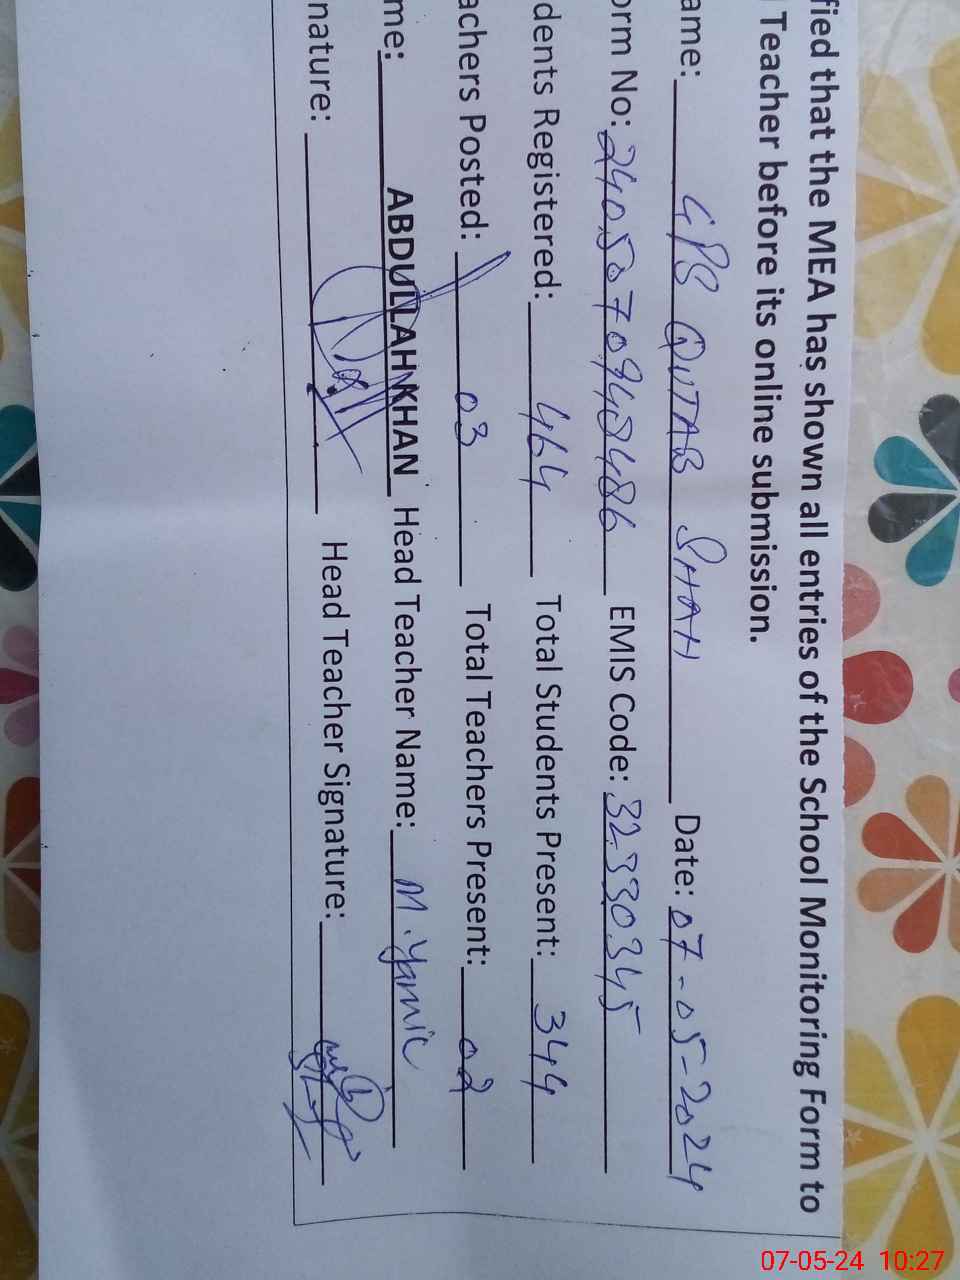 fied that the MEA has shown all entries of the School Monitoring Form to
Teacher before its online submission.
ame: GPS QUTAB SHAH Date: 07-05-2024
orm No: EMIS Code: 32330345
dents Registered: 464 Total Students Present: 344
achers Posted: 03 Total Teachers Present: 02
me: ABDULLAH KHAN Head Teacher Name: M.
nature: Head Teacher Signature:
07-05-24 10:27